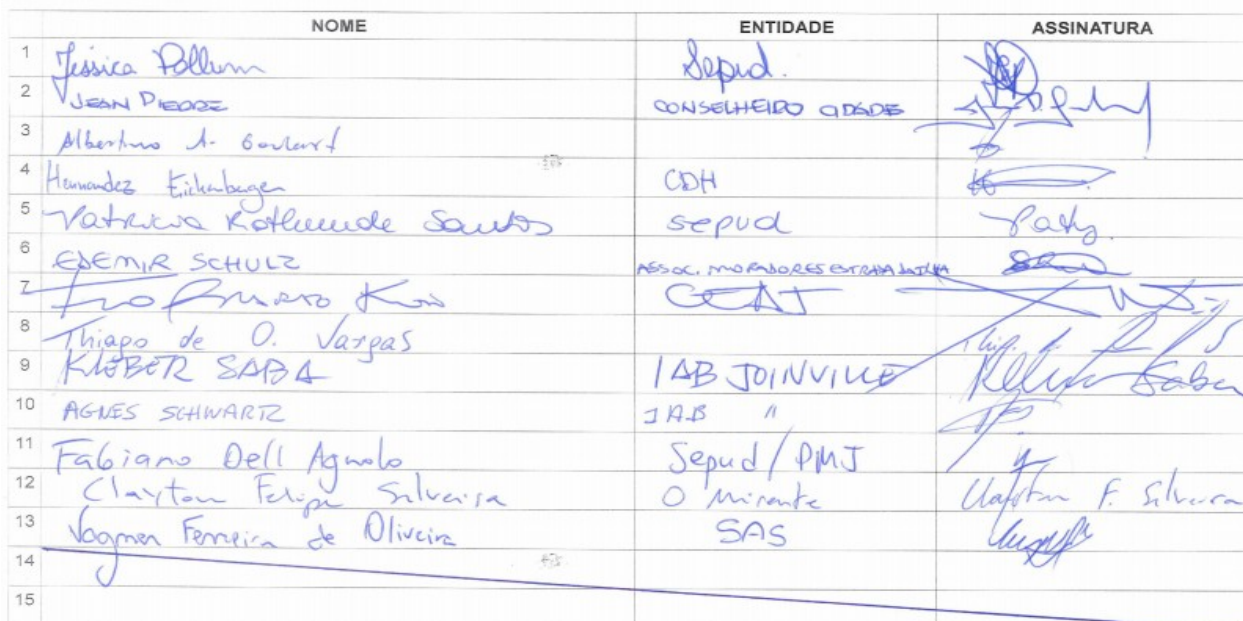 NOME ENTIDADE ASSINATURA
1 Jéssica Pollum Sepud.
2 JEAN PIERRE CONSELHEIRO CIDADE
3 Albertino A. Goulart
4 Hernandez Eichenberger CDH
5 Patricia Rathunde Santos sepud Paty.
6 EDEMIR SCHULZ ASSOC. MORADORES ESTRADA DA ILHA
7 CEAJ
8 Thiago de O. Vargas
9 KLEBER SABA IAB JOINVILLE Kleber Saba
10 AGNES SCHWARTZ IAB "
11 Fabiano Dell Agnolo Sepud/PMJ
12 Clayton Felipe Silveira O Mirante Clayton F. Silveira
13 Vagner Ferreira de Oliveira SAS
14
15